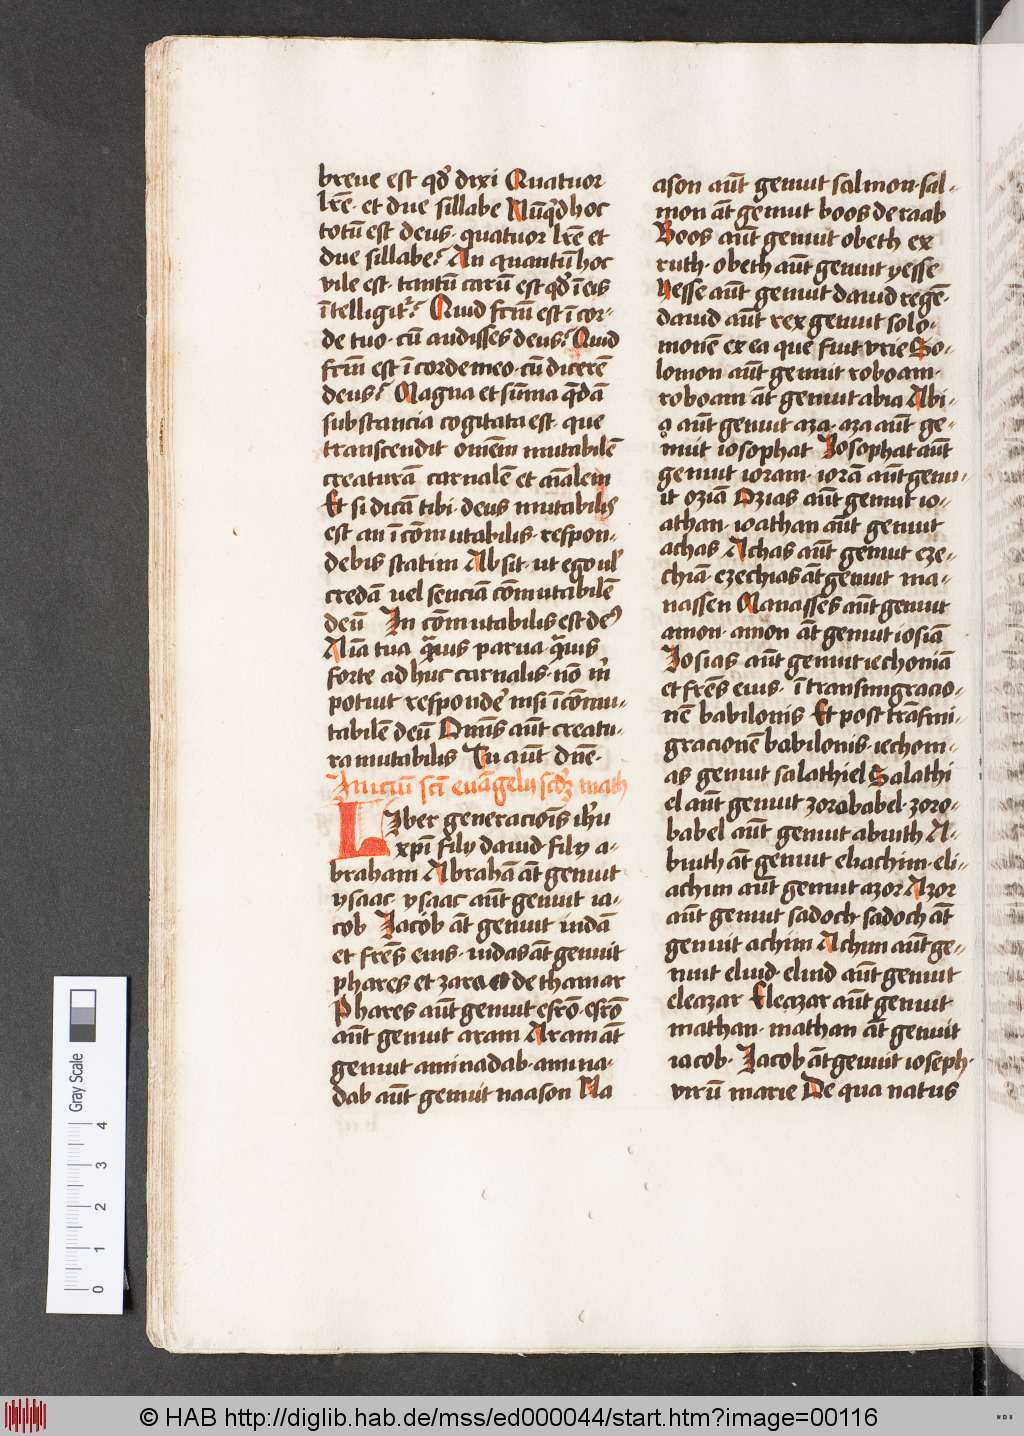 breue est qd̕ dixi Quatuor
lr̄e· et due sillabe Nūqd̕ hoc
totū est deus· quatuor lr̄e et
due sillabe? An quantū hoc
vile est· tantū carū est qd̕ ī eis
ītelligit̕? Quid fcm̄ est ī cor⸗
de tuo· cū audisses deus? Quid
fcm̄ est ī corde meo· cū dicerē
deus? Magna et sūma q̄dā
substancia cogitata est· que
transcendit omēm mutabilē
creaturā carnalē et aīalem
Et si dicā tibi· deus mutabilis
est an īcōmutabilis· respon⸗
debis statim Absit· ut ego ul̕
credā uel senciā cōmutabilē
deū In cōmutabilis est de᷒
Aīa tua q̄uis parua q̄uis
forte adhuc carnalis· nō m̕
potuit respondē nisi īcōmu⸗
tabilē deū Omīs aūt creatu⸗
ra mutabilis Tu aūt dn̄e·
Iniciū scī euāgelij scd̕ꝫ math
LIber generacioīs ih̕u
xp̄i filij dauid· filij a⸗
braham Abrahā āt genuit
ysaac· ysaac aūt genuit ia⸗
cob Iacob āt genuit iudā
et frēs eius· iudas āt genuit
phares et zara de thamar
Phares aūt genuit esrō· esrō
aūt genuit aram Aram āt
genuit aminadab· amina⸗
dab aūt genuit naason Na
ason aūt genuit salmon· sal⸗
mon āt genuit boos de raab
Boos aūt genuit obeth ex
ruth· obeth aūt genuit yesse
Yesse aūt genuit dauid regē·
dauid aūt rex genuit solo⸗
monē ex ea que fuit vrie So⸗
lomon aūt genuit roboam·
roboam āt genuit abia Abi⸗
a aūt genuit aza· aza aūt ge⸗
nuit iosophat Iosophat aūt
genuit ioram· iorā aūt genu⸗
it oziā Ozias aūt genuit io⸗
athan· ioathan aūt genuit
achas Achas aūt genuit eze⸗
chiā· ezechias āt genuit ma⸗
nassen Manasses aūt genuit
amon· amon āt genuit iosiā
Iosias aūt genuit iechoniā
et frēs eius· ī transmigracio⸗
nē babilonis Et post trāsmi⸗
gracionē babilonis· iechoni⸗
as genuit salathiel Salathi
el aūt genuit zorobabel· zoro⸗
babel aūt genuit abiuth A⸗
biuth āt genuit eliachim· eli⸗
achim aūt genuit azor Azor
aūt genuit sadoch sadoch āt
genuit achim Achim aūt ge⸗
nuit eliud· eliud aūt genuit
eleazar Eleazar aūt genuit
mathan· mathan āt genuit
iacob· Iacob āt genuit ioseph·
virū marie De qua natus
Gray Scale
0 1 2 3 4
© HAB http://diglib.hab.de/mss/ed000044/start.htm?image=00116